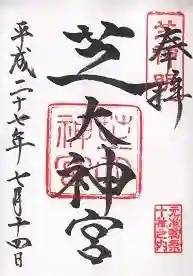 奉拝
芝大神宮
平成二十七年七月十四日
芝大神宮
元准勅祭
十社之内